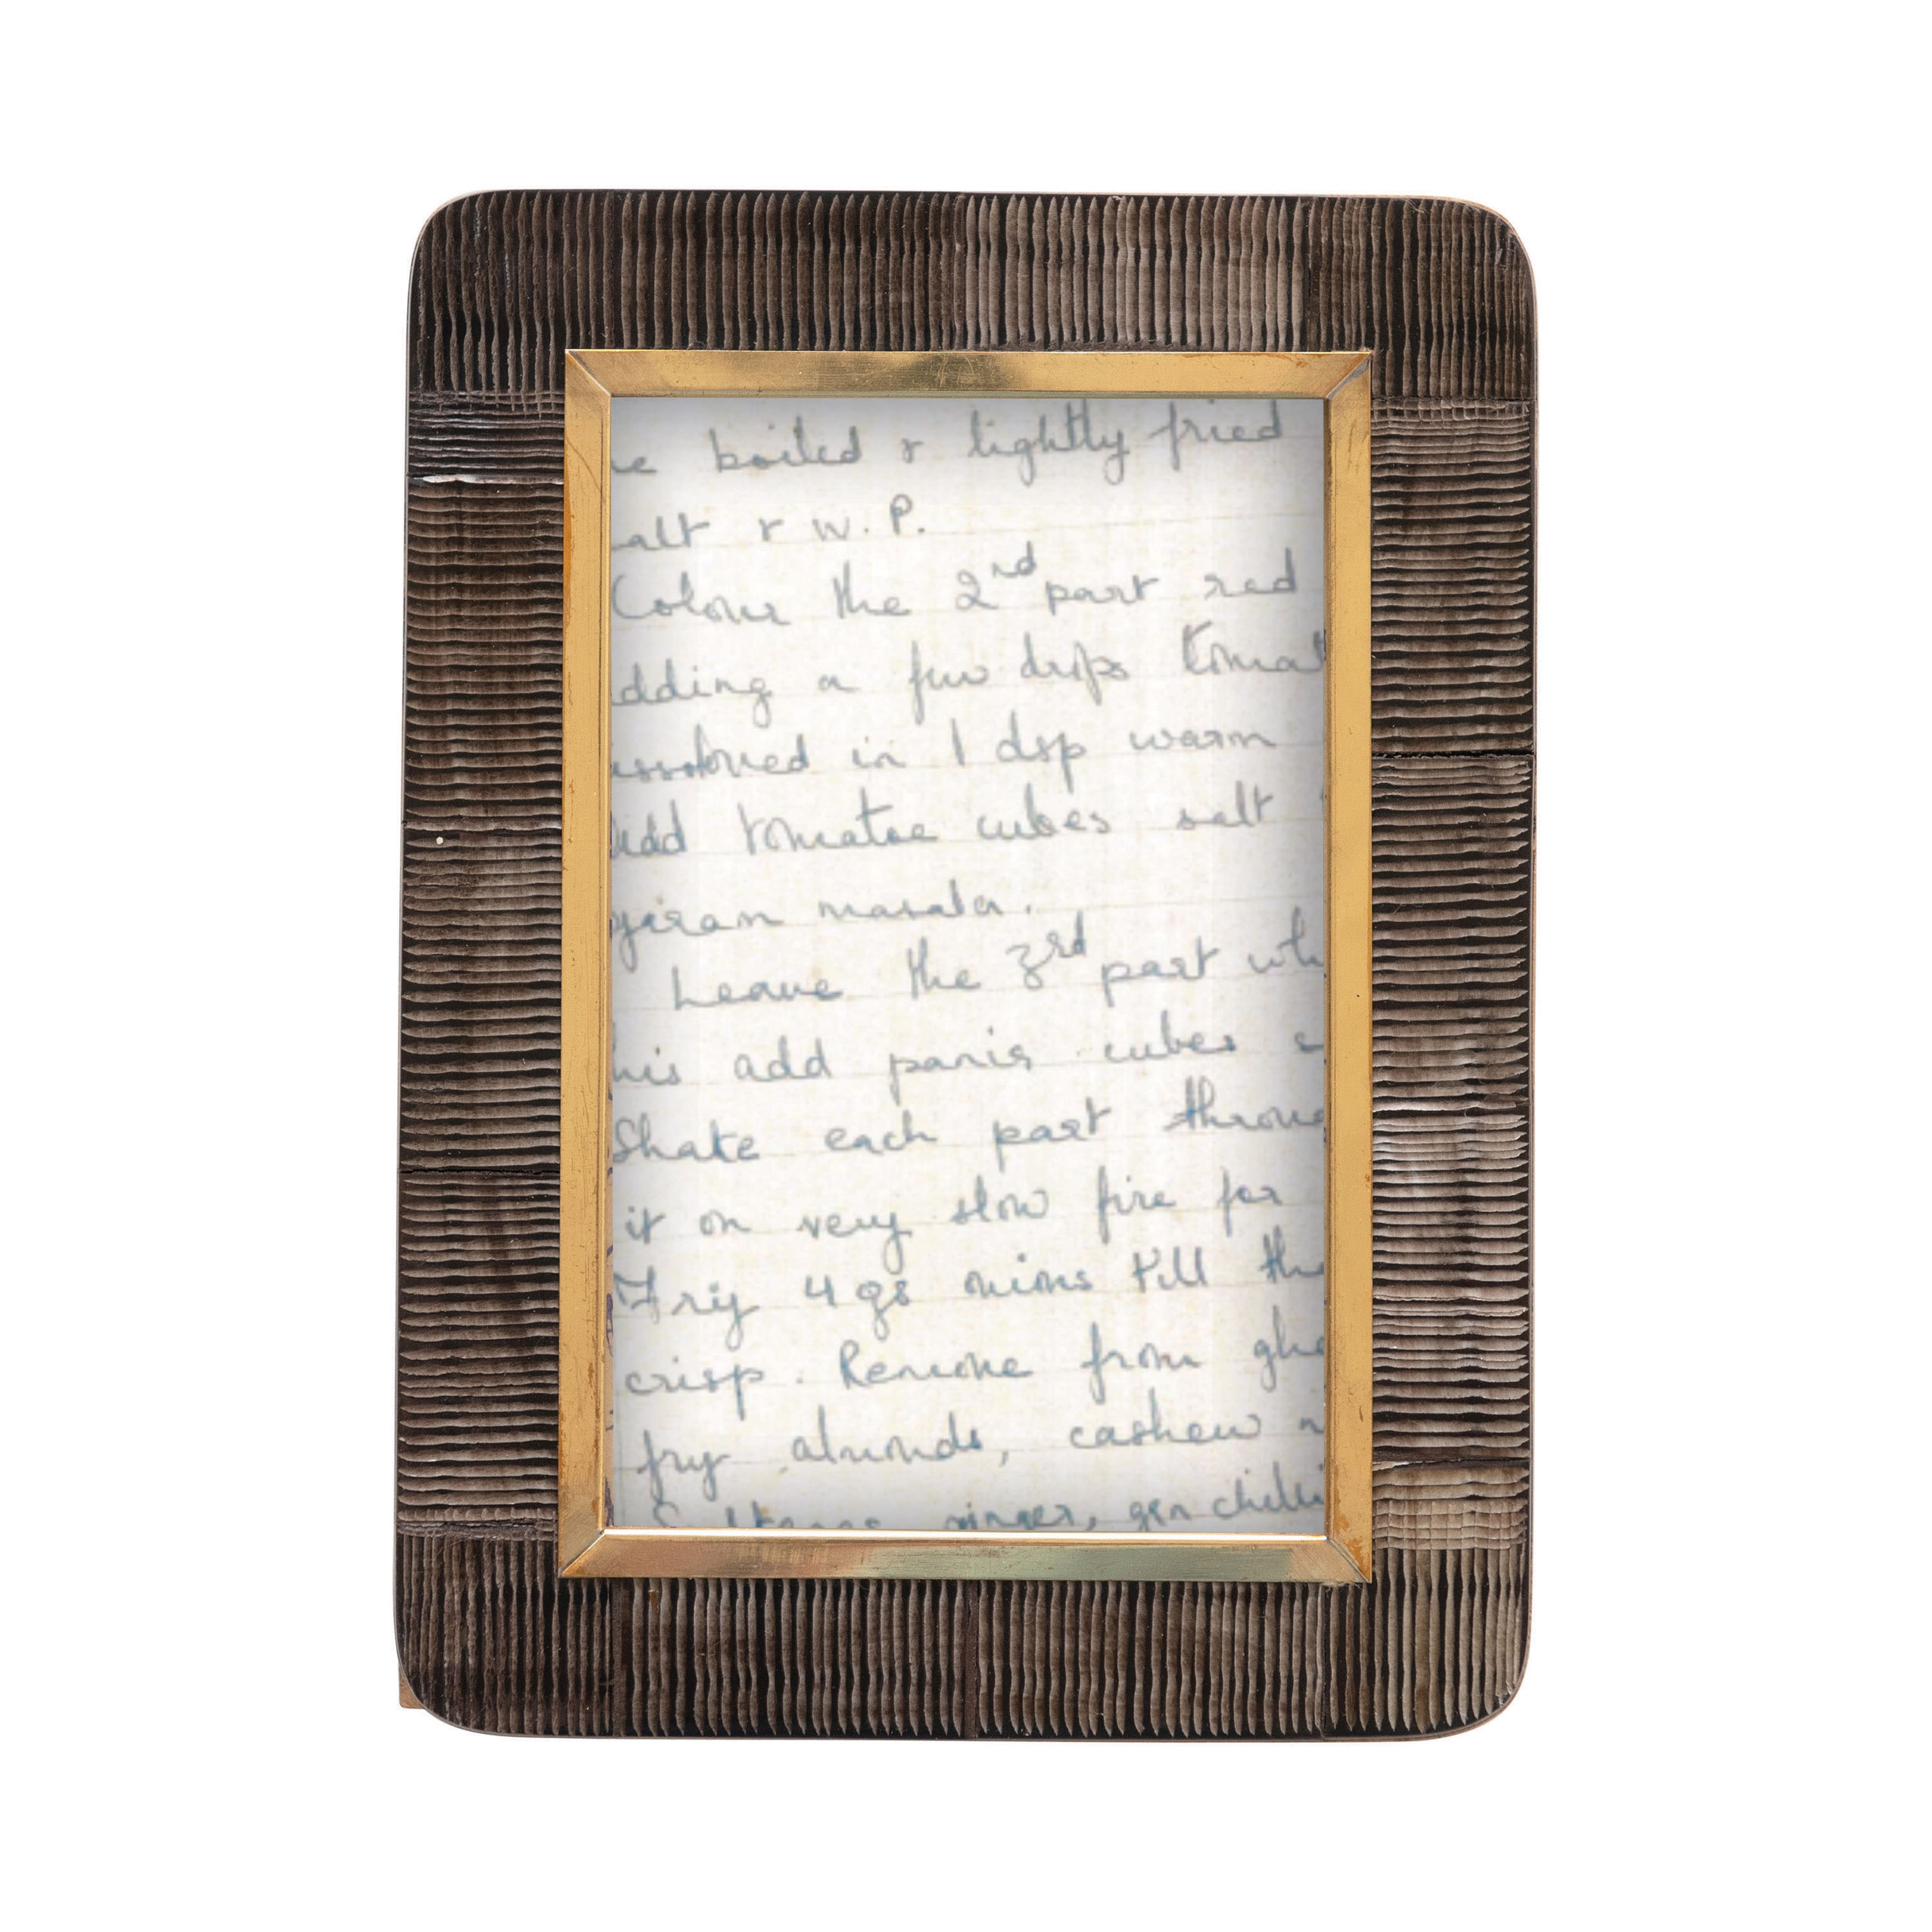 boiled & lightly fried
alt & w.P.
Colour the 2nd part red
dding a few drops tomat
issolved in 1 dsp warm
Add tomatoe cubes salt
garam masala.
Leave the 3rd part wh
his add panir cubes
Shake each part throug
it on very slow fire for
Fry 4 gs onions till the
crisp. Remove from ghe
fry almonds, cashew n
Sultanas ginger, grn chilli